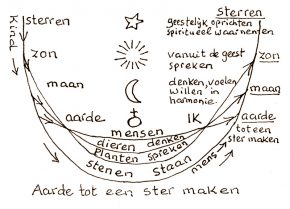 Sterren
sterren
geestelijk oprichten
spiritueel waarnemen
Kind
zon
vanuit de geest
spreken
zon
maan
denken, voelen
willen in
harmonie.
maan
aarde
IK
aarde
mensen
tot een
ster maken
dieren denken
planten spreken
stenen staan
mens
Aarde tot een ster maken